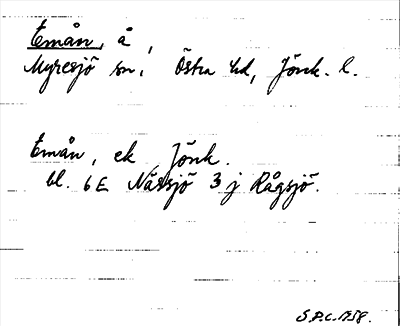 Emån, å,
Myresjö sn, Östra hd, Jönk. l.
Emån, ek Jönk.
bl. 6E Nässjö 3 j Rågsjö.
S.P.C. 1758.